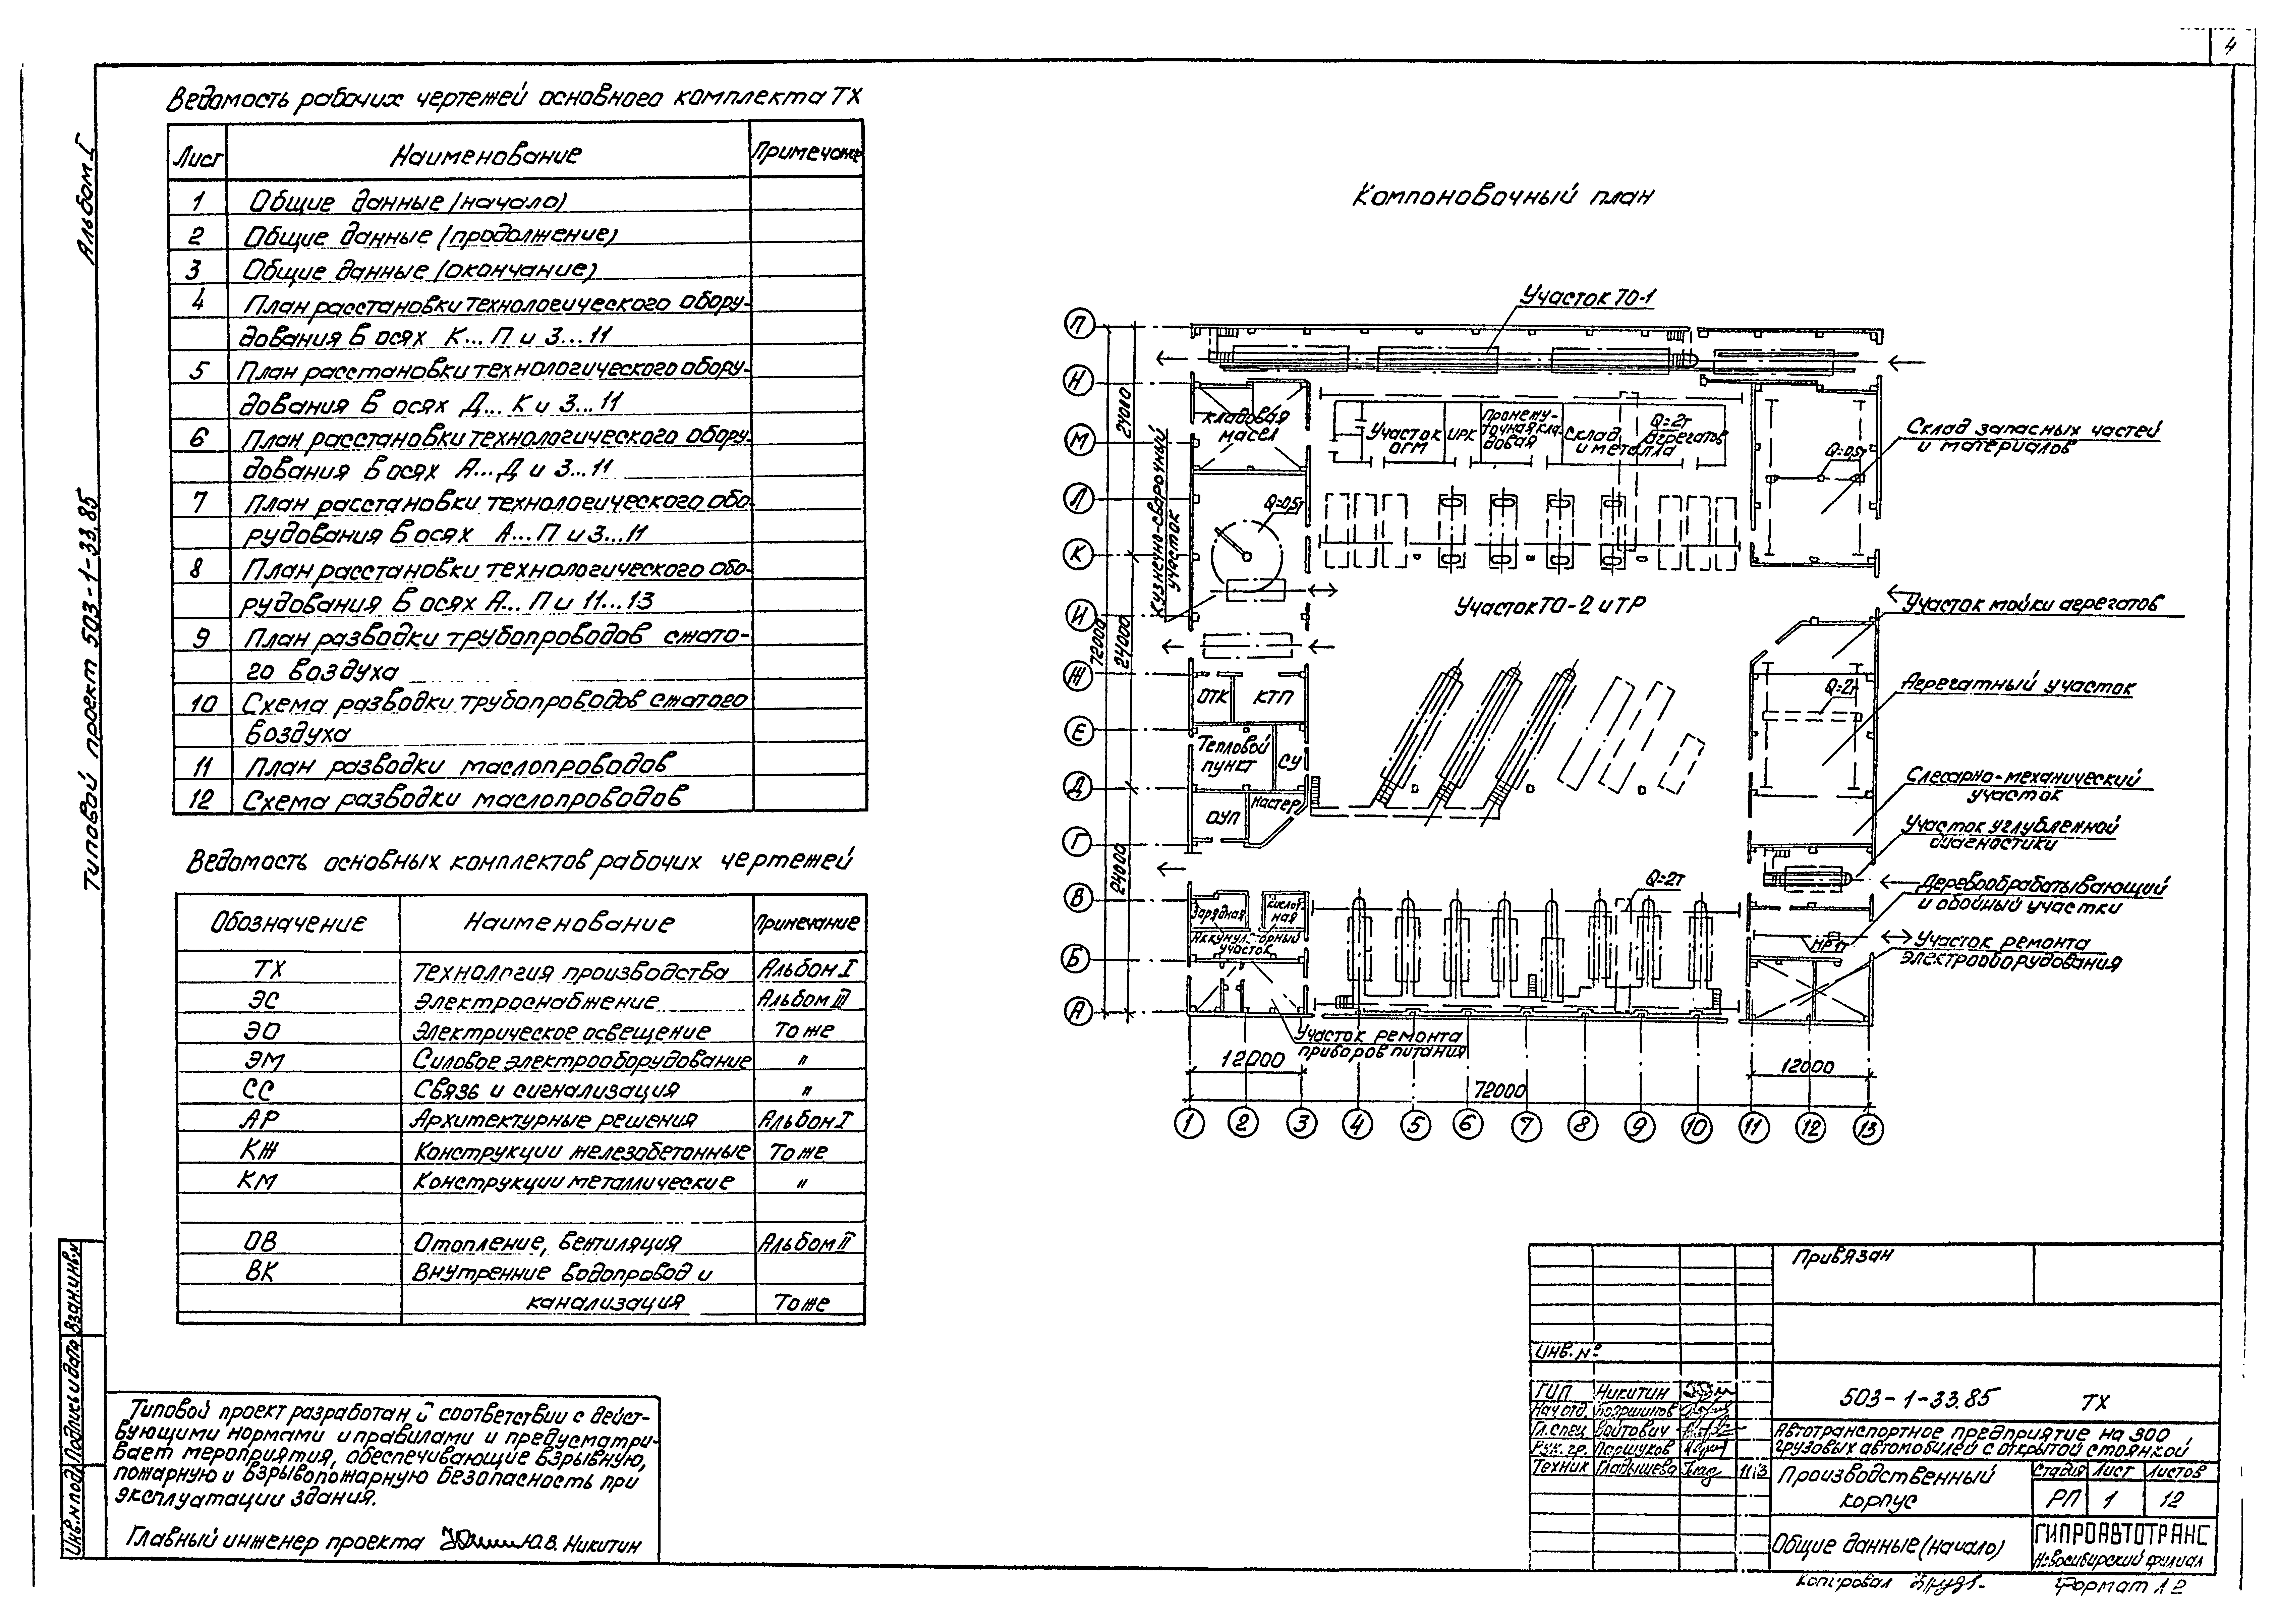 4
Альбом I
Типовой проект 503-1-33.85
Ведомость рабочих чертежей основного комплекта ТХ
Лист Наименование Примечание
1 Общие данные (начало)
2 Общие данные (продолжение)
3 Общие данные (окончание)
4 План расстановки технологического обору-
дования в осях К...П и 3...11
5 План расстановки технологического обору-
дования в осях Д...К и 3...11
6 План расстановки технологического обору-
дования в осях А...Д и 3...11
7 План расстановки технологического обо-
рудования в осях А...П и 3...11
8 План расстановки технологического обо-
рудования в осях А...П и 11...13
9 План разводки трубопроводов сжато-
го воздуха
10 Схема разводки трубопроводов сжатого
воздуха
11 План разводки маслопроводов
12 Схема разводки маслопроводов
Ведомость основных комплектов рабочих чертежей
Обозначение Наименование Примечание
ТХ Технология производства Альбом I
ЭС Электроснабжение Альбом III
ЭО Электрическое освещение То же
ЭМ Силовое электрооборудование "
СС Связь и сигнализация "
АР Архитектурные решения Альбом I
КЖ Конструкции железобетонные То же
КМ Конструкции металлические "
ОВ Отопление, вентиляция Альбом II
ВК Внутренние водопровод и
канализация То же
Типовой проект разработан в соответствии с дейст-
вующими нормами и правилами и предусматри-
вает мероприятия, обеспечивающие взрывную,
пожарную и взрывопожарную безопасность при
эксплуатации здания.
Главный инженер проекта Ю.В. Никитин
Инв.№подл. Подпись и дата Взам.инв.№
Компоновочный план
Участок ТО-1
П
Н
М
Л
К
И
Ж
Е
Д
Г
В
Б
А
24000
24000
24000
72000
Кладовая
масел
Кузнечно-сварочный
участок
Q=0,5т
Участок
ОГМ
ИРК
Промежу-
точная кла-
довая
Склад
и металла
Q=2т
агрегатов
Q=0,5т
Склад запасных частей
и материалов
Участок ТО-2 и ТР
Участок мойки агрегатов
ОТК
КТП
Q=2т
Агрегатный участок
Тепловой
пункт
СУ
Слесарно-механический
участок
ОУП
Мастер
Участок углубленной
диагностики
Q=2т
Деревообрабатывающий
и обойный участки
Зарядная
Кислот-
ная
Аккумуляторный
участок
Участок ремонта
электрооборудования
Участок ремонта
приборов питания
12000
12000
72000
1 2 3 4 5 6 7 8 9 10 11 12 13
Привязан
Инв.№
ГИП Никитин
Нач.отд.
Гл.спец. Войтович
Рук.гр. Паршуков
Техник Гладышева
503-1-33.85 ТХ
Автотранспортное предприятие на 300
грузовых автомобилей с открытой стоянкой
Производственный
корпус
Стадия Лист Листов
РП 1 12
Общие данные (начало)
ГИПРОАВТОТРАНС
Новосибирский филиал
Копировал
Формат А2